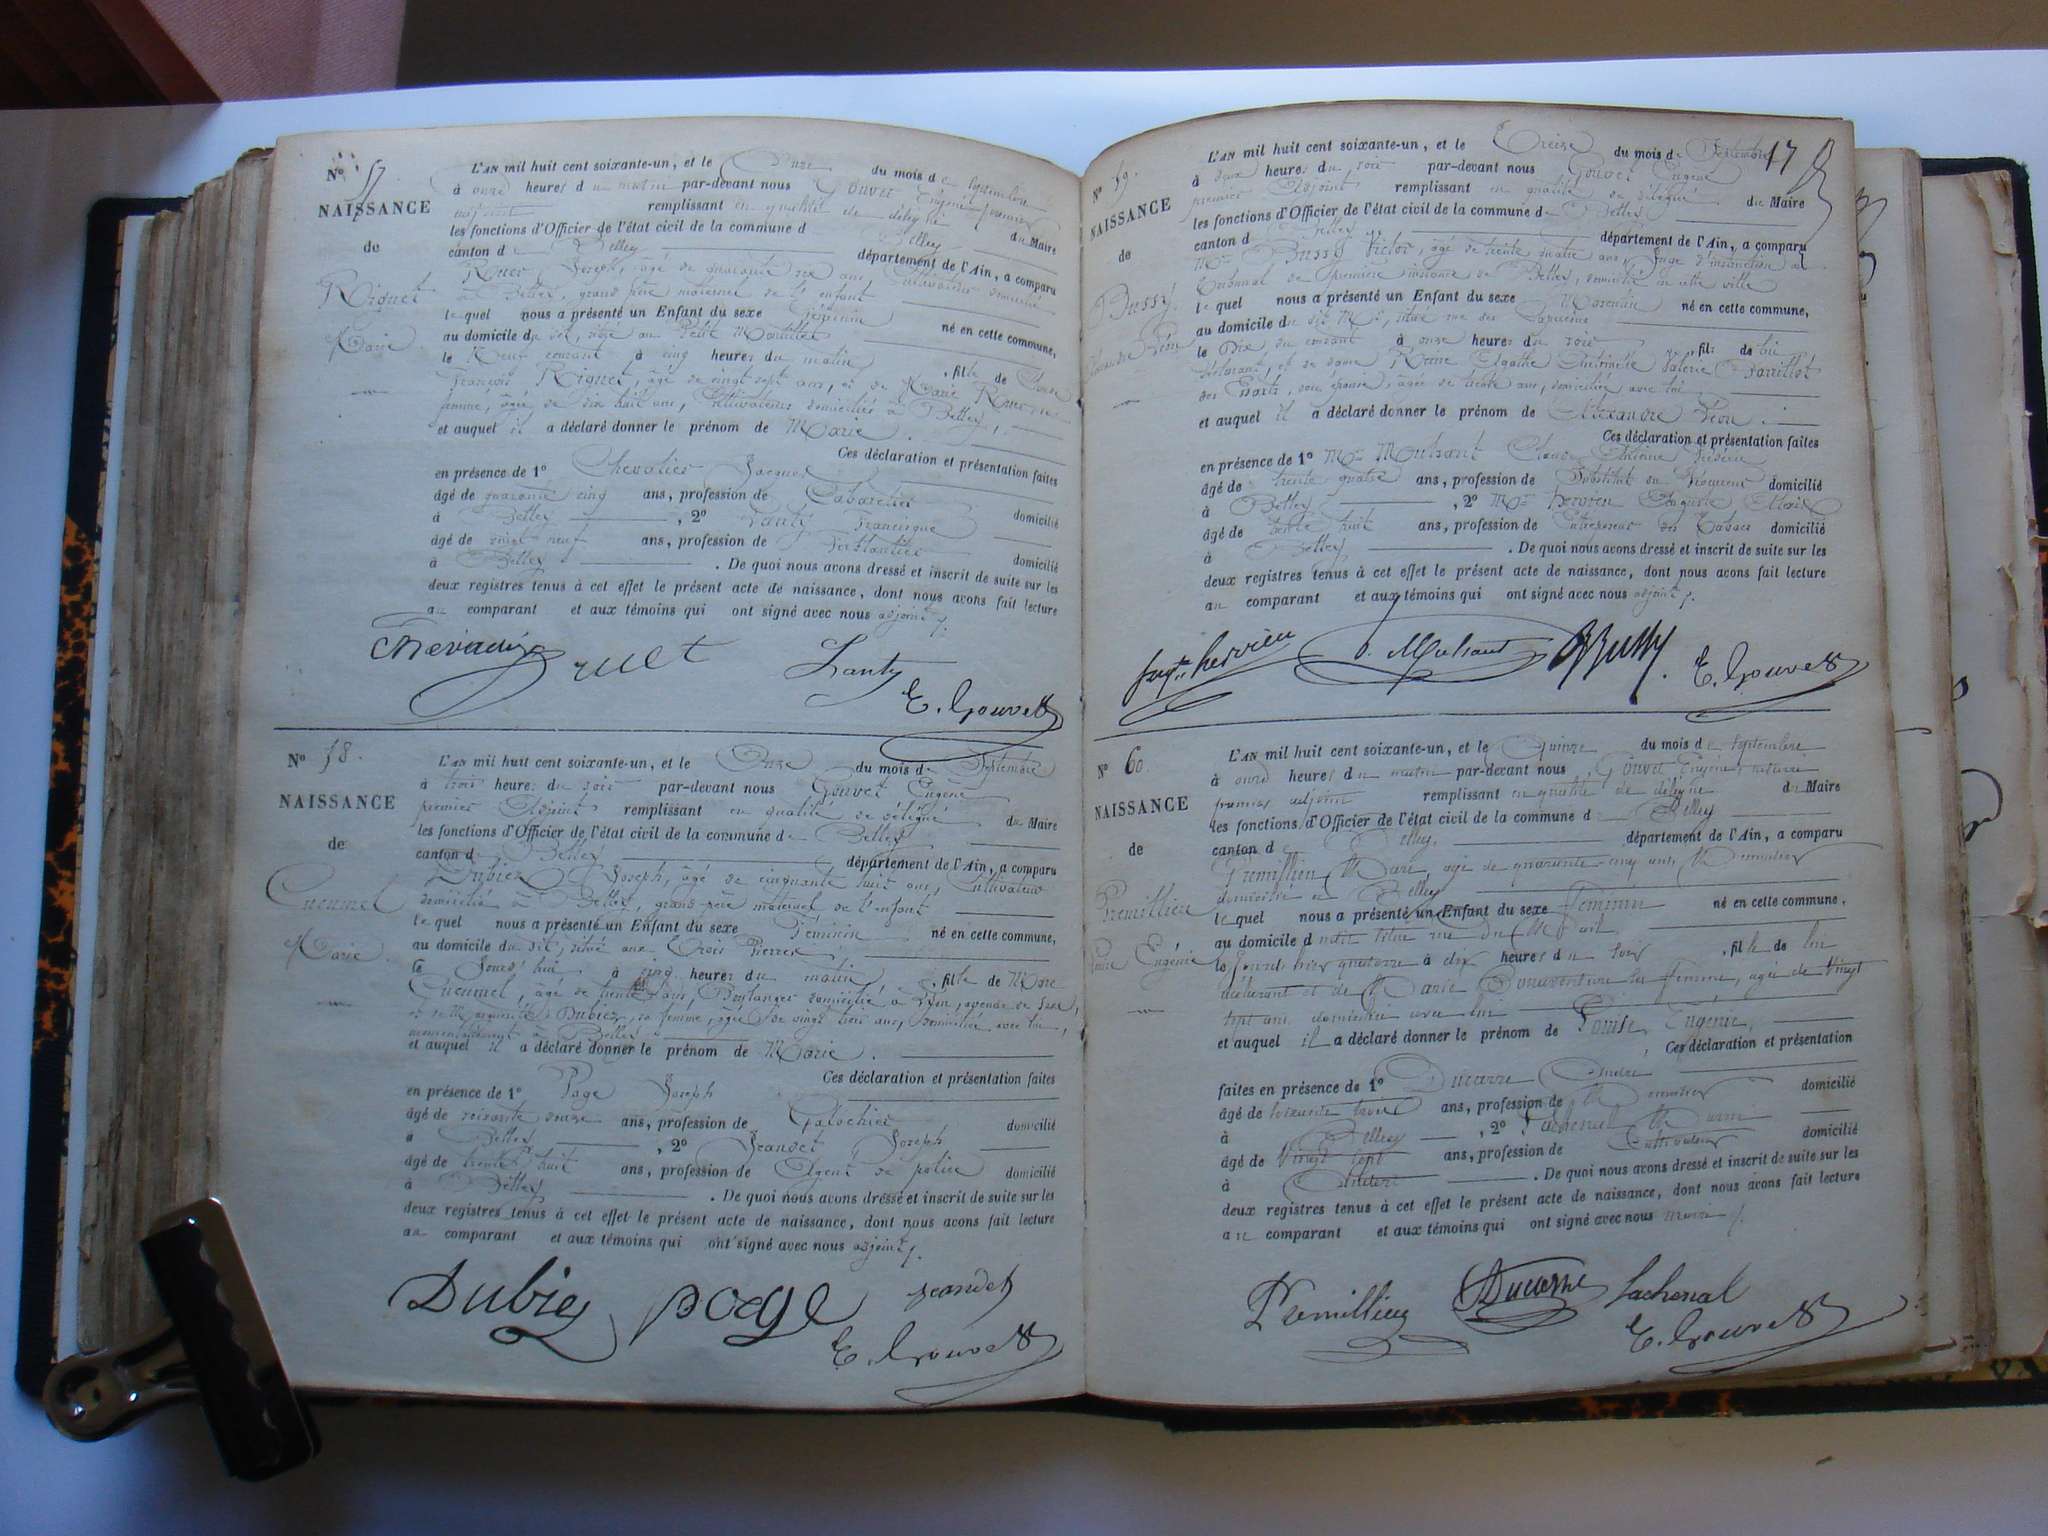 Nº 57
NAISSANCE
de
Riquet
Marie
L'AN mil huit cent soixante-un, et le Onze du mois de Septembre
à onze heures du matin par-devant nous Gouvet Eugène premier
adjoint remplissant en qualité de délégué du Maire
les fonctions d'Officier de l'état civil de la commune d
canton de Belley Belley département de l'Ain, a comparu
Joseph, âgé de quarante ans, Cultivateur domicilié
à Belley, grand père maternel de l'enfant
lequel nous a présenté un Enfant du sexe féminin né en cette commune,
au domicile du dit, situé au Petit
le Neuf courant à cinq heures du matin, fille de
François Riquet, âgé de vingt sept ans, et de Marie
femme, âgée de dix huit ans, Cultivateurs domiciliés à Belley,
et auquel il a déclaré donner le prénom de Marie.
Ces déclaration et présentation faites
en présence de 1º Chevalier Jacques
âgé de quarante cinq ans, profession de Cabaretier domicilié
à Belley, 2º Lanty Francisque
âgé de neuf ans, profession de Ferblantier domicilié
à Belley. De quoi nous avons dressé et inscrit de suite sur les
deux registres tenus à cet effet le présent acte de naissance, dont nous avons fait lecture
au comparant et aux témoins qui ont signé avec nous adjoint
ruet Lanty
E. Gouvet
Nº 58.
NAISSANCE
de
Cucumel
Marie.
L'AN mil huit cent soixante-un, et le Onze du mois de Septembre
à trois heures du soir par-devant nous Gouvet Eugène
premier Adjoint remplissant en qualité de délégué du Maire
les fonctions d'Officier de l'état civil de la commune de Belley
canton de Belley département de l'Ain, a comparu
Dubiez Joseph, âgé de cinquante huit ans, Cultivateur
domicilié à Belley, grand-père maternel de l'enfant
lequel nous a présenté un Enfant du sexe Féminin né en cette commune,
au domicile du dit, situé aux Trois Pierres
le Jourd'hui à cinq heures du matin, fille de Marc
Cucumel, âgé de trente ans, Boulanger domicilié à Lyon,
et de Dubiez, sa femme, âgée de vingt trois ans, domiciliée avec lui,
momentanément à Belley
et auquel il a déclaré donner le prénom de Marie.
Ces déclaration et présentation faites
en présence de 1º Page Joseph
âgé de soixante ans, profession de Galochier domicilié
à Belley, 2º Jeandet Joseph
âgé de trente huit ans, profession de Agent de police domicilié
à Belley. De quoi nous avons dressé et inscrit de suite sur les
deux registres tenus à cet effet le présent acte de naissance, dont nous avons fait lecture
au comparant et aux témoins qui ont signé avec nous adjoint
Dubiez page Jeandet
E. Gouvet
17
Nº 59.
NAISSANCE
de
Bussy
Alexandre Léon
L'AN mil huit cent soixante-un, et le Treize du mois de Septembre
à deux heures du soir par-devant nous Gouvet Eugène
premier Adjoint remplissant en qualité de délégué du Maire
les fonctions d'Officier de l'état civil de la commune de Belley
canton d Belley département de l'Ain, a comparu
Mr Bussy Victor, âgé de trente quatre ans, Juge d'instruction au
Tribunal de première instance de Belley, domicilié en cette ville
lequel nous a présenté un Enfant du sexe Masculin né en cette commune,
au domicile du dit Mr, situé rue des Capucins
le Dix du courant à onze heures du soir, fils de lui
déclarant, et de dame Reine Agathe Valérie
des Essarts, son épouse, âgée de trente ans, domiciliée avec lui
et auquel il a déclaré donner le prénom de Alexandre Léon.
Ces déclaration et présentation faites
en présence de 1º Mr Mulsant Claude Antoine Frédéric
âgé de trente quatre ans, profession de Substitut du Procureur domicilié
à Belley, 2º Mr hervieu Auguste
âgé de trente huit ans, profession de Entreposeur des Tabacs domicilié
à Belley. De quoi nous avons dressé et inscrit de suite sur les
deux registres tenus à cet effet le présent acte de naissance, dont nous avons fait lecture
au comparant et aux témoins qui ont signé avec nous adjoint
hervieu Mulsant Bussy
E. Gouvet
Nº 60.
NAISSANCE
de
Premillieu
Louise Eugénie
L'AN mil huit cent soixante-un, et le Quinze du mois de septembre
à onze heures du matin par-devant nous Gouvet Eugène, notaire
premier adjoint remplissant en qualité de délégué du Maire
les fonctions d'Officier de l'état civil de la commune d Belley
canton de Belley. département de l'Ain, a comparu
Premillieu Marc, âgé de quarante cinq ans, Menuisier
domicilié à Belley
lequel nous a présenté un Enfant du sexe féminin né en cette commune,
au domicile d situé rue du Mail
le jourd'hier quatorze à dix heures du soir, fille de lui
déclarant et de Marie Bonaventure sa femme, âgée de vingt
sept ans domiciliée avec lui
et auquel il a déclaré donner le prénom de Louise, Eugénie,
Ces déclaration et présentation
faites en présence de 1º Ducarre André
âgé de soixante trois ans, profession de Menuisier domicilié
à Belley, 2º Lachenal
âgé de vingt sept ans, profession de Cultivateur domicilié
à Andert. De quoi nous avons dressé et inscrit de suite sur les
deux registres tenus à cet effet le présent acte de naissance, dont nous avons fait lecture
au comparant et aux témoins qui ont signé avec nous
Premillieu Ducarre Lachenal
E. Gouvet